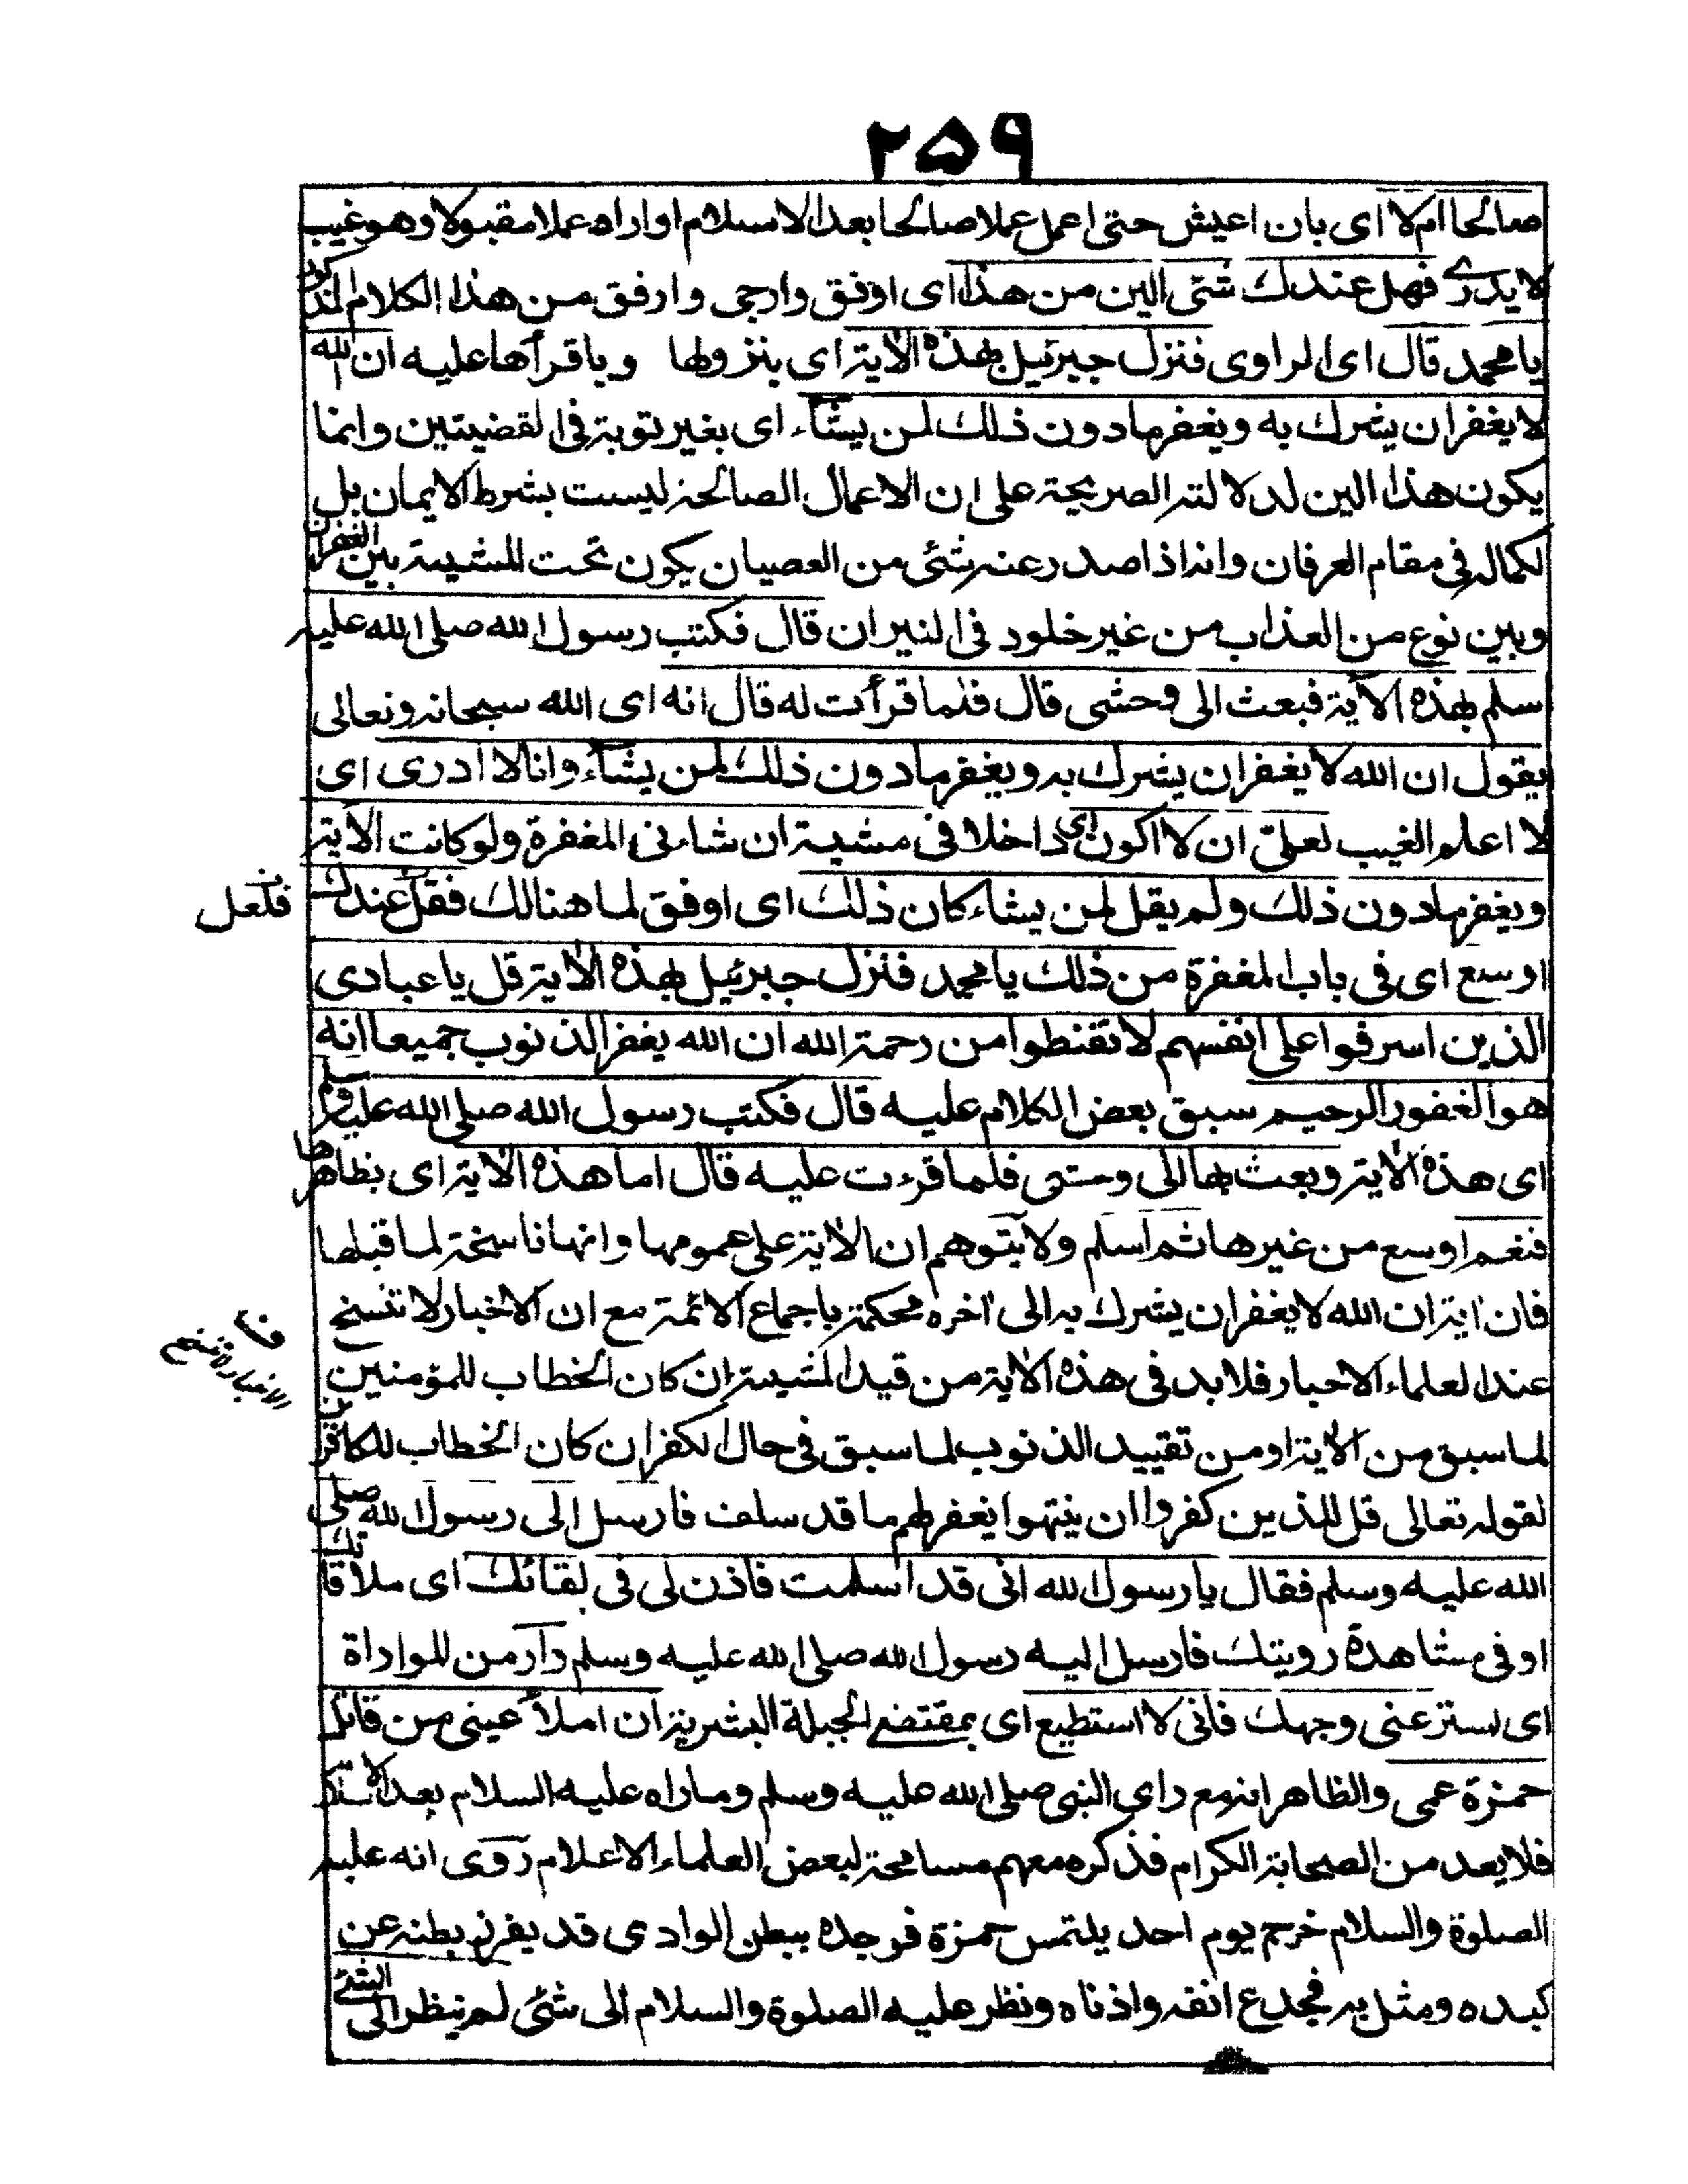 ۲۵۹
صالحا ام لا اى بان اعيش حتى اعمل عملا صالحا بعد الاسلام او اراه عملا مقبولا وهو غيب
لا يدرے فهل عندك شئ الين من هذا اى اوفق وارجى وارفق من هذا الكلام المذكور
يا محمد قال اى الراوى فنزل جبرئيل بهذه الآية اى بنزولها وباقرأها عليه ان الله
لا يغفر ان يشرك به ويغفر ما دون ذلك لمن يشآء اى بغير توبة فى القضيتين وانما
يكون هذا الين لدلالته الصريحة على ان الاعمال الصالحة ليست بشرط الايمان بل
لكماله فى مقام العرفان وانه اذا صدر عنه شئى من العصيان يكون تحت المشيية بين الغفران
وبين نوع من العذاب من غير خلود فى النيران قال فكتب رسول الله صلى الله عليه
سلم بهذه الآية فبعث الى وحشى قال فلما قرأت له قال انه اى الله سبحانه وتعالى
يقول ان الله لا يغفر ان يشرك به ويغفر ما دون ذلك لمن يشآء وانا لا ادرى اى
لا اعلم الغيب لعلى ان لا اكون اى داخلا فى مشيية ان شاء نى المغفرة ولو كانت الآية
ويغفر ما دون ذلك ولم يقل لمن يشاء كان ذلك اى اوفق لما هنالك فقل عندك
فلعل
اوسع اى فى باب المغفرة من ذلك يا محمد فنزل جبرئيل بهذه الآية قل يا عبادى
الذين اسرفوا على انفسهم لا تقنطوا من رحمة الله ان الله يغفر الذنوب جميعا انه
هو الغفور الرحيم سبق بعض الكلام عليه قال فكتب رسول الله صلى الله عليه وسلم
اى هذه الآية وبعث بها الى وحشى فلما قرءت عليه قال اما هذه الآية اى بظاهرها
فنعم اوسع من غيرها ثم اسلم ولا يتوهم ان الآية على عمومها وانها ناسخة لما قبلها
فان اية ان الله لا يغفر ان يشرك به الى اخره محكمة باجماع الائمة مع ان الاخبار لا تنسخ
الاخبار لا تنسخ
عند العلماء الاحبار فلا بد فى هذه الآية من قيد المشيية ان كان الخطاب للمؤمنين
لما سبق من الآية او من تقييد الذنوب لما سبق فى حال الكفر ان كان الخطاب للكافرين
لقوله تعالى قل للذين كفروا ان ينتهوا يغفر لهم ما قد سلف فارسل الى رسول الله صلى
الله عليه وسلم فقال يا رسول الله انى قد اسلمت فاذن لى فى لقائك اى ملاقاتك
او فى مشاهدة رويتك فارسل اليه رسول الله صلى الله عليه وسلم دار من المواراة
اى استر عنى وجهك فانى لا استطيع اى بمقتضے الجبلة البشرية ان املأ عينى من قاتل
حمزة عمى والظاهر انه مع راى النبى صلى الله عليه وسلم وما راه عليه السلام بعد الاسلام
فلا يعد من الصحابة الكرام فذكره معهم مسامحة لبعض العلماء الاعلام روى انه عليه
الصلوة والسلام خرج يوم احد يلتمس حمزة فوجده ببطن الوادى قد يفرز بطنه عن
كبده ومثل به فجدع انفه واذناه ونظر عليه الصلوة والسلام الى شئى لم ينظر الى الشئے